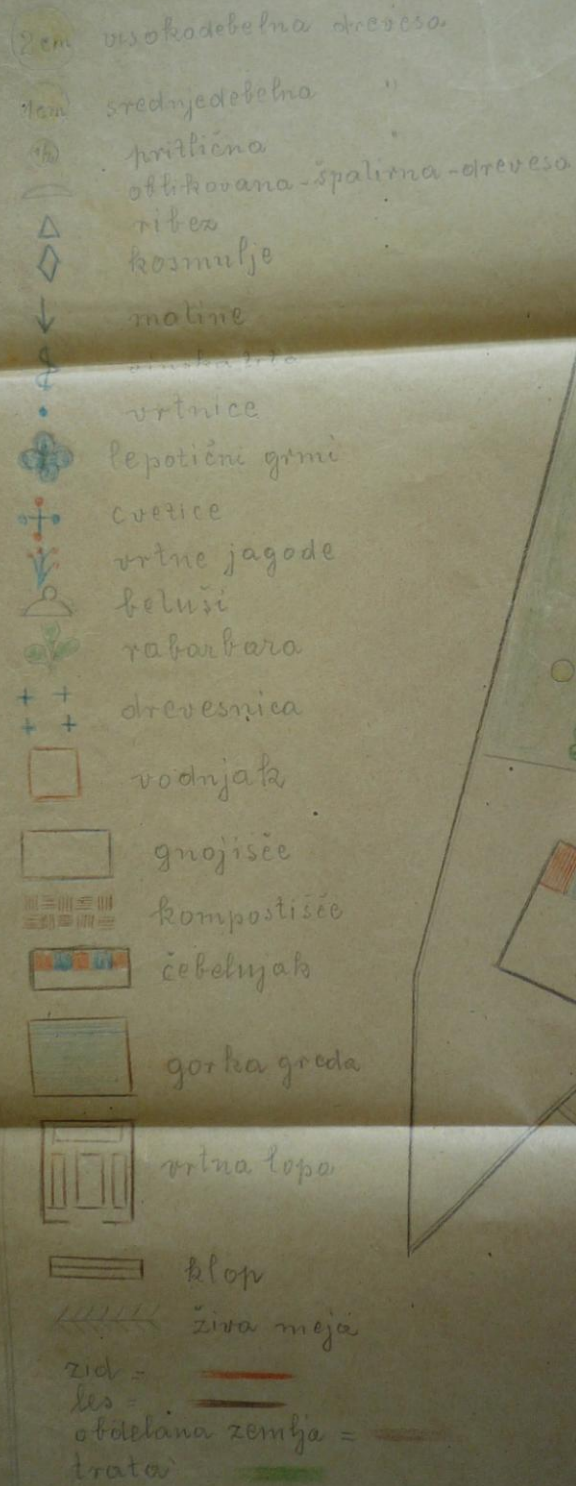 2 cm visokodebelna drevesa
1 cm srednjedebelna "
pritlična "
oblikovana - špalirna - drevesa
ribez
kosmulje
maline
vinska trta
vrtnice
lepotični grmi
cvetice
vrtne jagode
beluši
rabarbara
drevesnica
vodnjak
gnojišče
kompostišče
čebelnjak
gorka greda
vrtna lopa
klop
živa meja
zid =
les =
obdelana zemlja =
trata